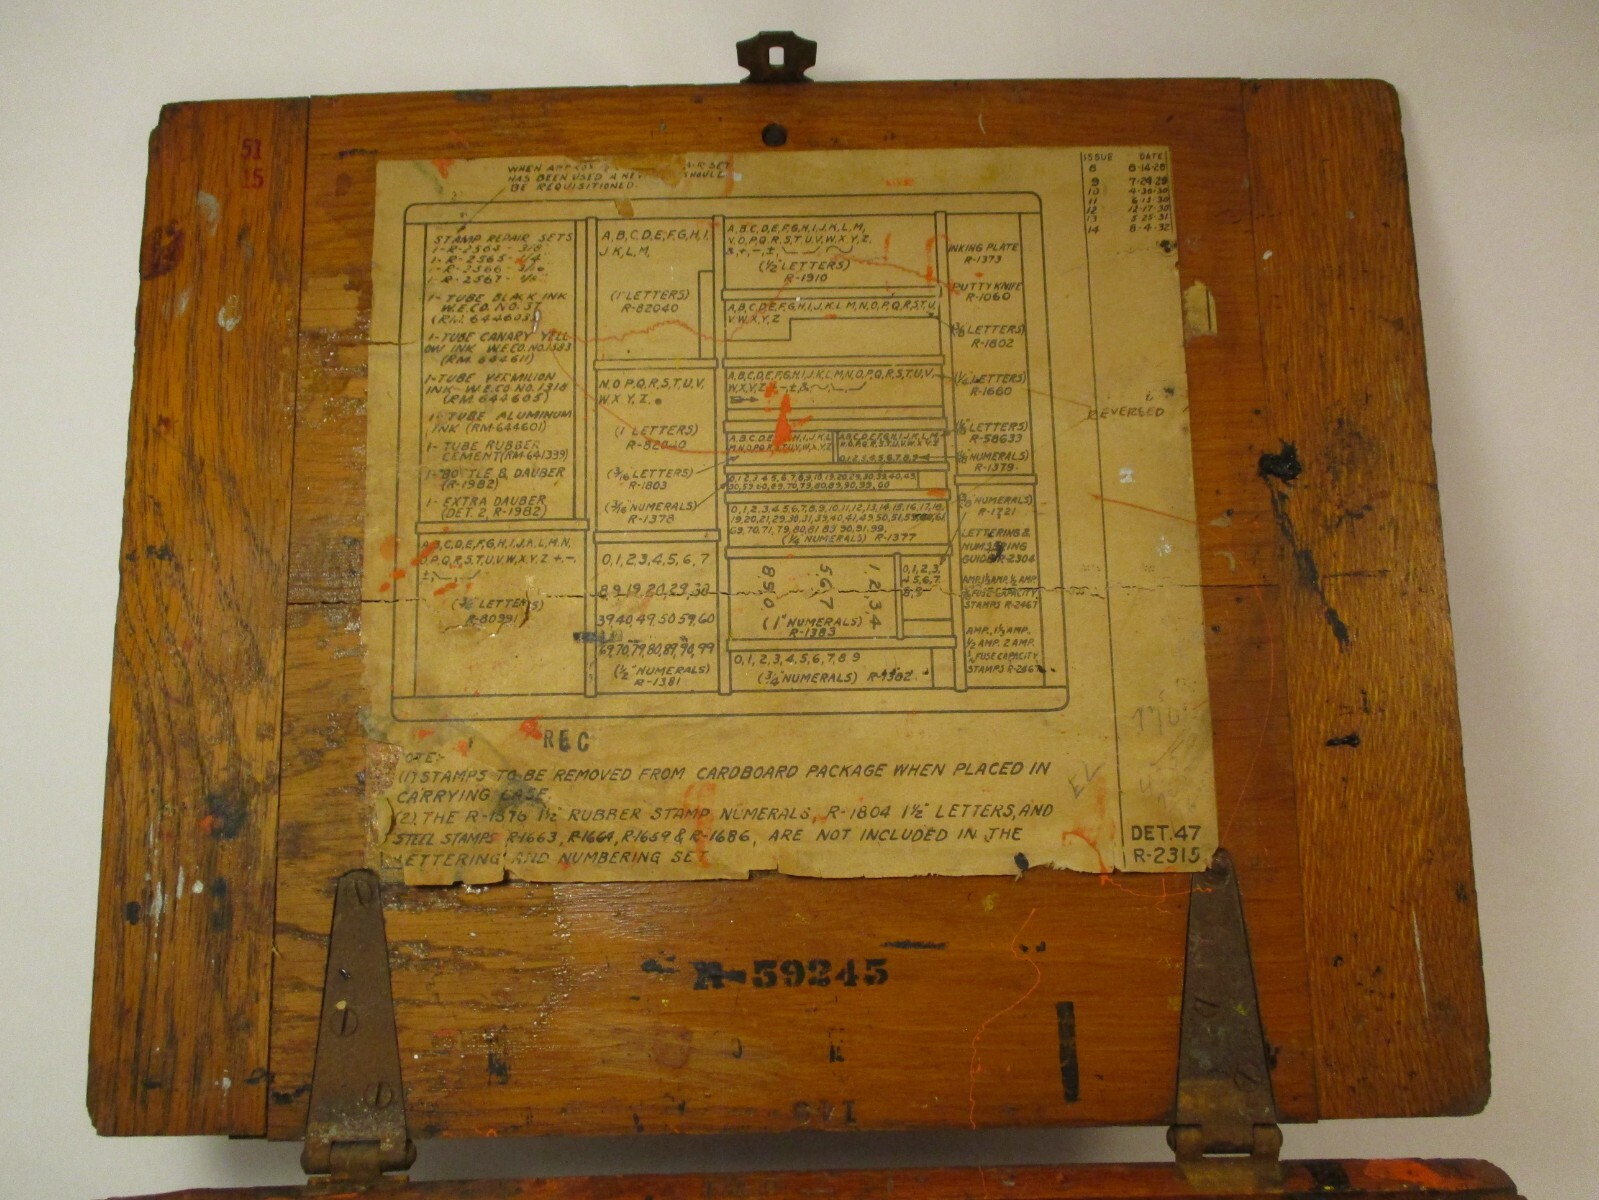 51
15
WHEN
HAS BEEN USED A
BE REQUISITIONED.
ISSUE DATE
8 8-16-28
9 7-29-29
10 4-30-30
11 6-13-30
12 12-17-30
13 5-25-31
14 8-4-32
STAMP REPAIR SETS
1-R-2565 - 1/4
1-R-2566 - 3/16
1-R-2567 -
1-TUBE BLACK INK
W.E.CO. NO. 37
1-TUBE CANARY YELL
OW INK W.E.CO. NO. 1383
(RM. 644611)
1-TUBE VERMILION
INK-W.E.CO. NO. 1318
(RM. 644605)
1-TUBE ALUMINUM
INK (RM-644601)
1- TUBE RUBBER
CEMENT (RM-641339)
1-BOTTLE & DAUBER
(R-1982)
1- EXTRA DAUBER
(DET. 2, R-1982)
A,B,C,D,E,F,G,H,I,J,K,L,M,N,
O,P,Q,R,S,T,U,V,W,X,Y,Z +,-,
LETTERS)
R-80991
A,B,C,D,E,F,G,H,I,
J,K,L,M,
(1" LETTERS)
R-82040
N,O,P,Q,R,S,T,U,V,
W,X,Y,Z.
(1" LETTERS)
R-82040
(3/16" LETTERS)
R-1803
(3/16" NUMERALS)
R-1378
0,1,2,3,4,5,6,7
8,9,19,20,29,30
39,40,49,50,59,60
69,70,79,80,89,90,99
(1/2" NUMERALS)
R-1381
A,B,C,D,E,F,G,H,I,J,K,L,M,
N,O,P,Q,R,S,T,U,V,W,X,Y,Z,
(1/2" LETTERS)
R-1910
A,B,C,D,E,F,G,H,I,J,K,L,M,N,O,P,Q,R,S,T,U,
V,W,X,Y,Z
A,B,C,D,E,F,G,H,I,J,K,L,M,N,O,P,Q,R,S,T,U,V,
W,X,Y,Z
(1/4" NUMERALS) R-1377
8 9 0
5 6 7
1, 2, 3, 4
(1" NUMERALS)
R-1383
0,1,2,3,
4,5,6,7
0,1,2,3,4,5,6,7,8,9
(3/4" NUMERALS) R-1382
INKING PLATE
R-1373
PUTTY KNIFE
R-1060
(3/8" LETTERS)
R-1802
(1/4" LETTERS)
R-1660
LETTERS)
R-58633
NUMERALS)
R-1379
(3/8" NUMERALS)
R-1721
LETTERING &
NUMBERING
GUIDE R-2304
FUSE CAPACITY
STAMPS R-2467
AMP., 1 1/3 AMP.
1/2 AMP. 2 AMP.
FUSE CAPACITY
STAMPS R-2467
REVERSED
REC
NOTE:-
(1) STAMPS TO BE REMOVED FROM CARDBOARD PACKAGE WHEN PLACED IN
CARRYING CASE.
(2) THE R-1376 1 1/2" RUBBER STAMP NUMERALS, R-1804 1 1/2" LETTERS, AND
STEEL STAMPS R-1663, R-1664, R-1659 & R-1686, ARE NOT INCLUDED IN THE
LETTERING AND NUMBERING SET
DET. 47
R-2315
R-59245